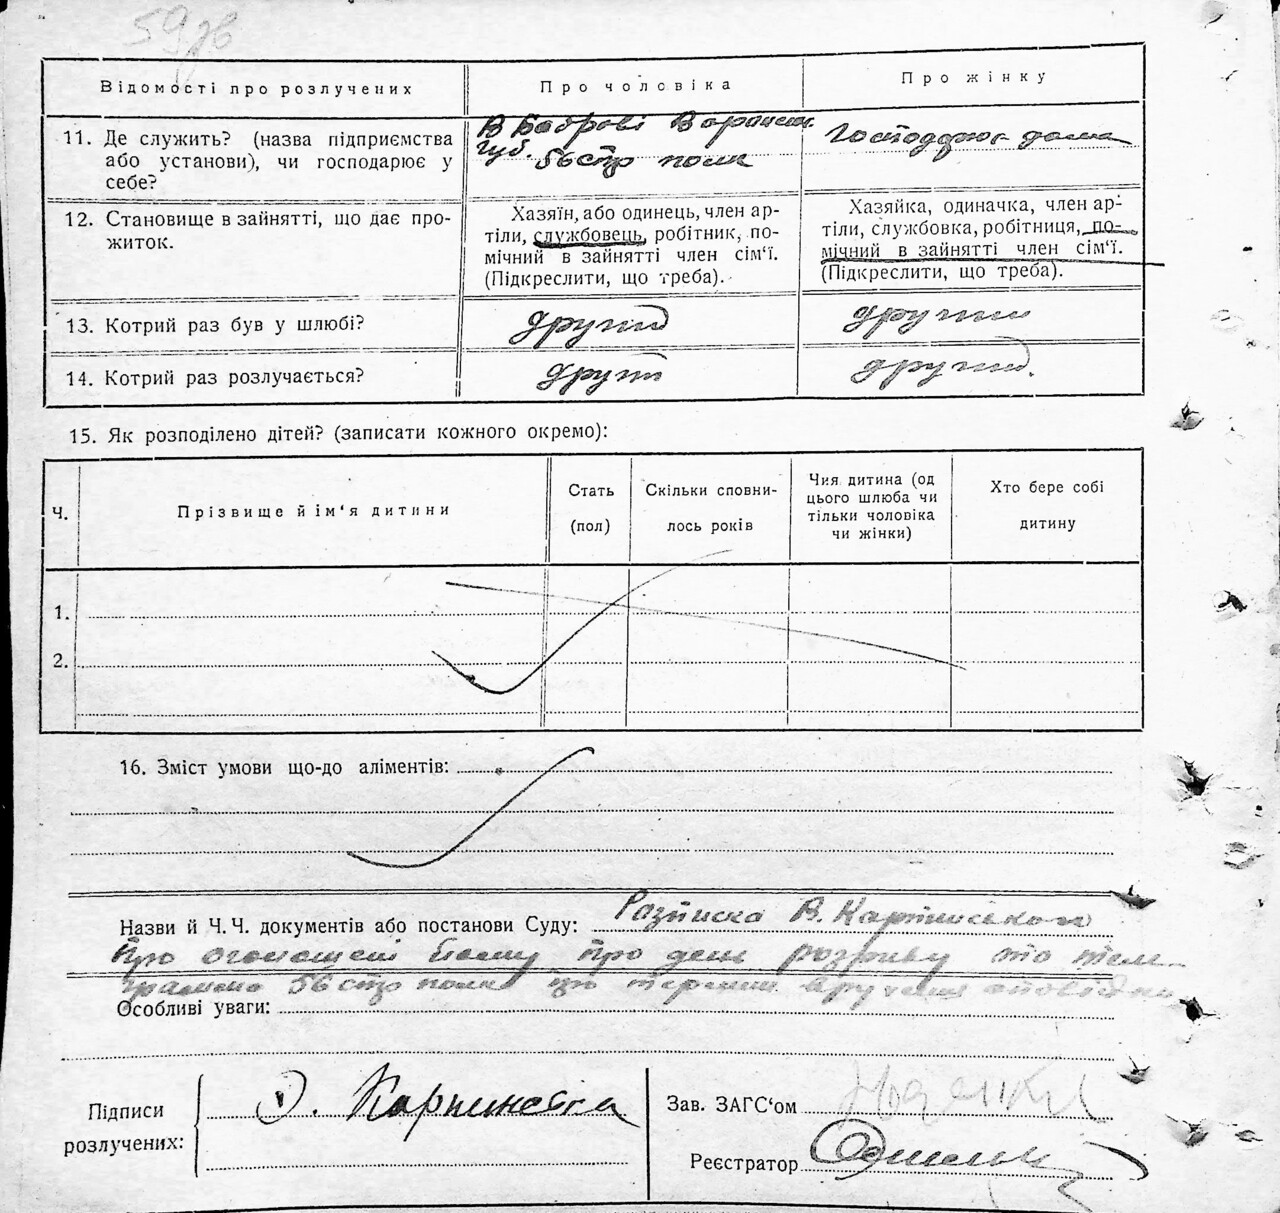 59зв
Відомості про розлучених
Про чоловіка
Про жінку
11. Де служить? (назва підприємства
або установи), чи господарює у
себе?
В Боброві Воронеж.
Губ. 56 стр полк
Господарює дома
12. Становище в зайнятті, що дає про-
житок.
Хазяїн, або одинець, член ар-
тіли, службовець, робітник, по-
мічний в зайнятті член сім‘ї.
(Підкреслити, що треба).
Хазяйка, одиначка, член ар-
тіли, службовка, робітниця, по-
мічний в зайнятті член сім‘ї.
(Підкреслити, що треба).
13. Котрий раз був у шлюбі?
другий
другий
14. Котрий раз розлучається?
другий
другий.
15. Як розподілено дітей? (записати кожного окремо):
Ч.
Прізвище й ім‘я дитини
Стать
(пол)
Скільки сповни-
лось років
Чия дитина (од
цього шлюба чи
тільки чоловіка
чи жінки)
Хто бере собі
дитину
1.
2.
16. Зміст умови що-до аліментів:
Назви й Ч. Ч. документів або постанови Суду: Розписка В. Карпинського
про оголошені йому про день розриву та теле-
грамма 56 стр полка про вручення
Особливі уваги:
Підписи
розлучених:
Карпинська
Зав. ЗАГС‘ом
Реєстратор